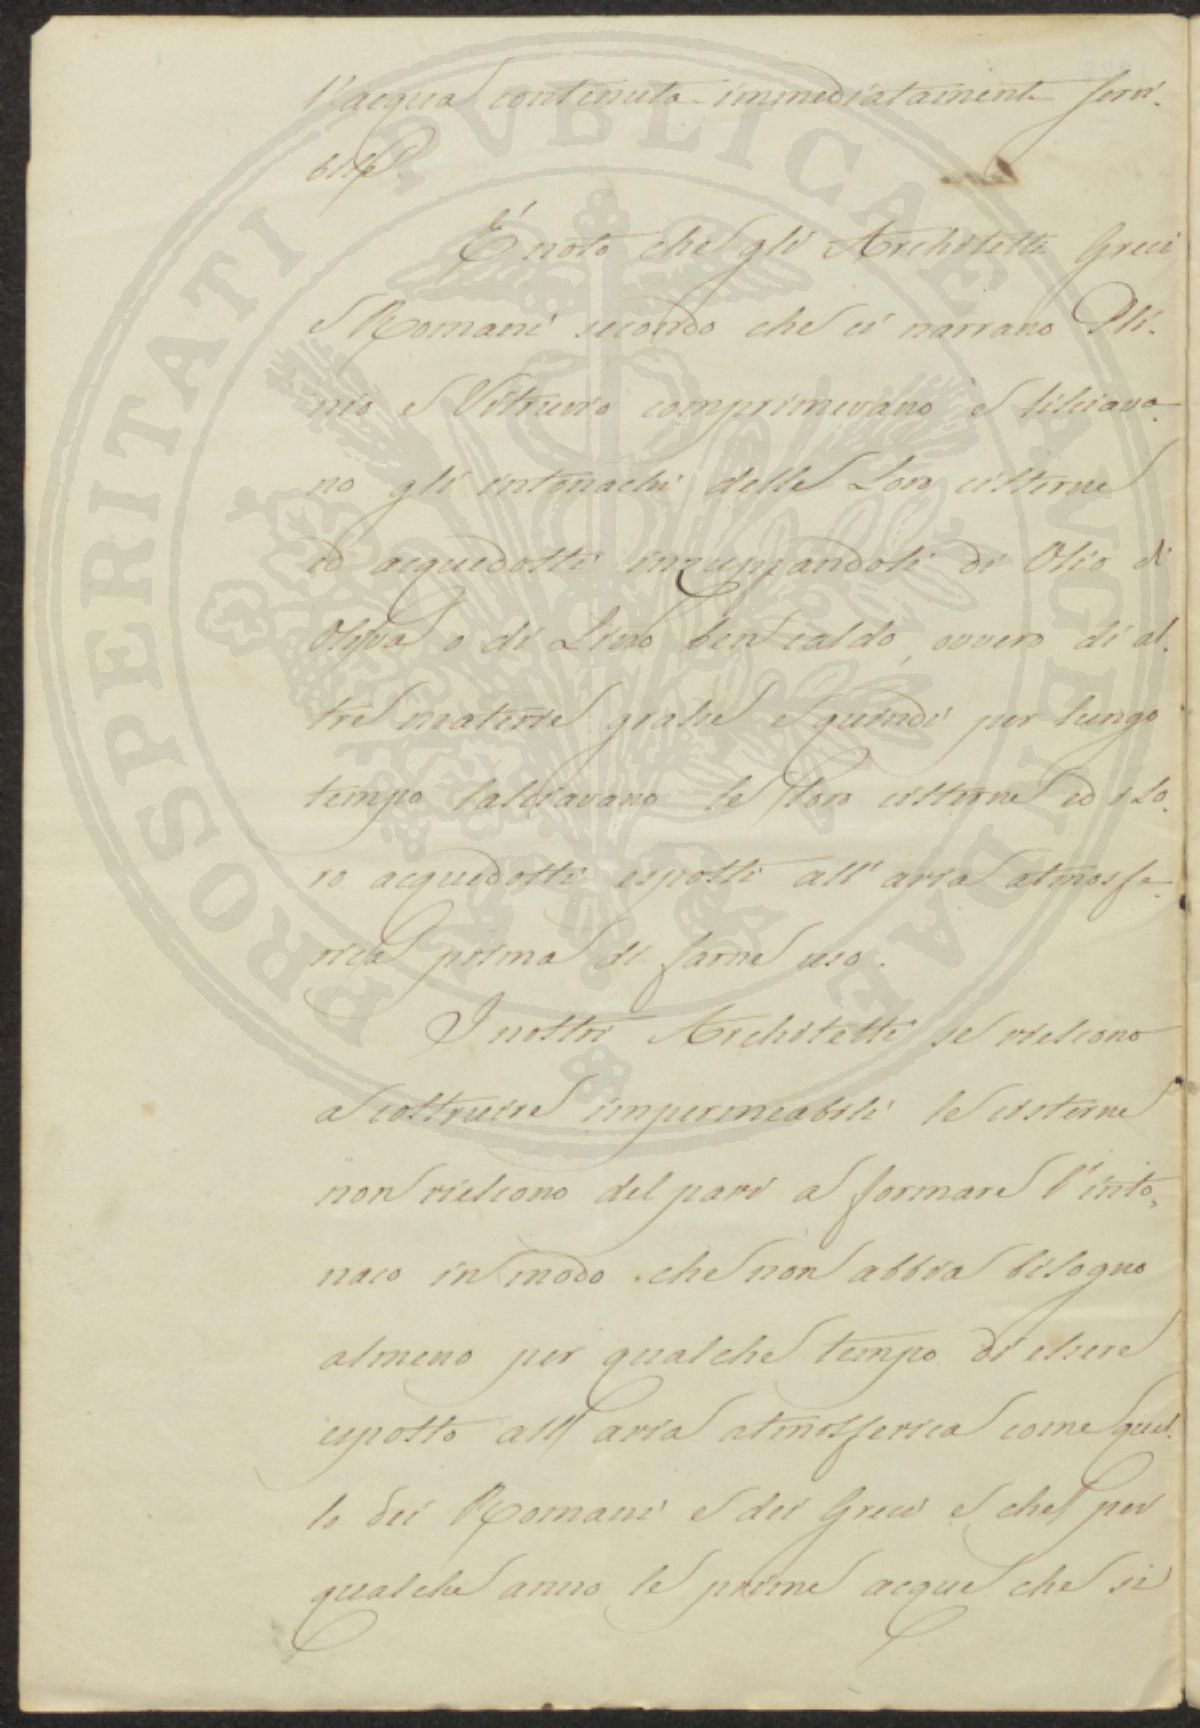 l'acqua contenuta immediatamente servi-
bile.
É noto che gli Architetti Greci
e Romani secondo che ci narrano Pli-
nio e Vitruvio comprimevano e lisciava-
no gli intonachi delle Loro cisterne
ed acquedotti inzuppandoli di Olio di
Oliva o di Lino ben caldo, ovvero di al-
tre materie grasse e quindi per lungo
tempo lasciavano le loro cisterne ed i Lo-
ro acquedotti esposti all'aria atmosfe-
rica prima di farne uso.
I nostri Architetti se riescono
a costruire impermeabili le cisterne
non riescono del pari a formare l'into-
naco in modo che non abbia bisogno
almeno per qualche tempo di essere
esposto all'aria atmosferica come quel-
lo dei Romani e dei Greci e che per
qualche anno le prime acque che si
PROSPERITATI PVBLICAE AVGENDAE